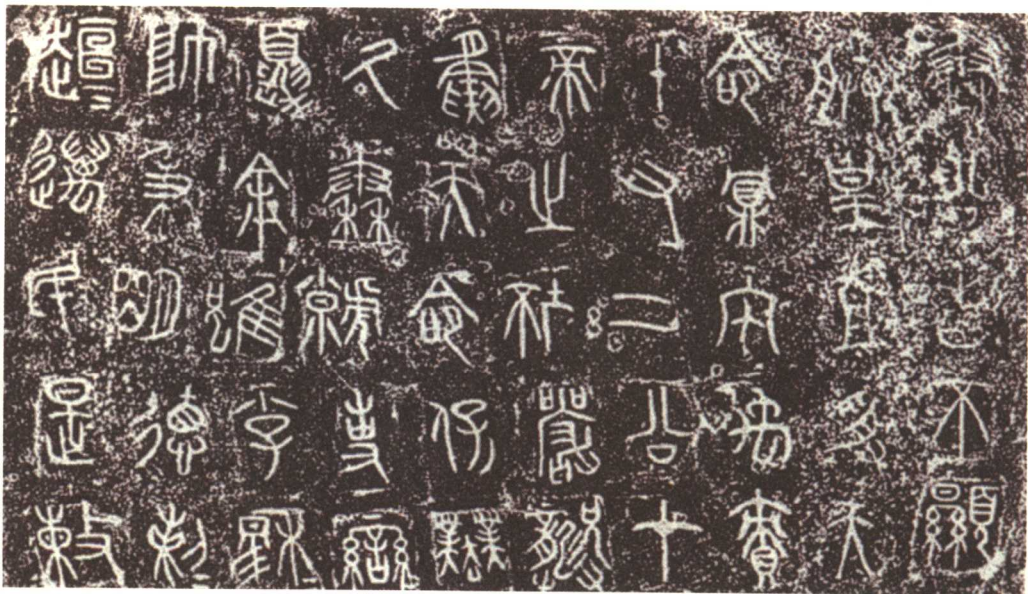 秦公曰不顯
朕皇且受天
命鼏宅禹責
十又二公才
帝之坏嚴龏
夤天命保業
厥秦虩事蠻
夏余雖小子穆＝
帥秉明德剌＝
趄＝邁民是敕